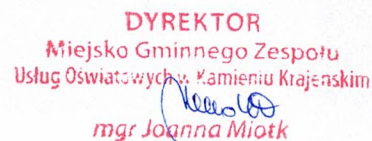 DYREKTOR
Miejsko Gminnego Zespołu
Usług Oświatowych w Kamieniu Krajeńskim
mgr Joanna Miotk